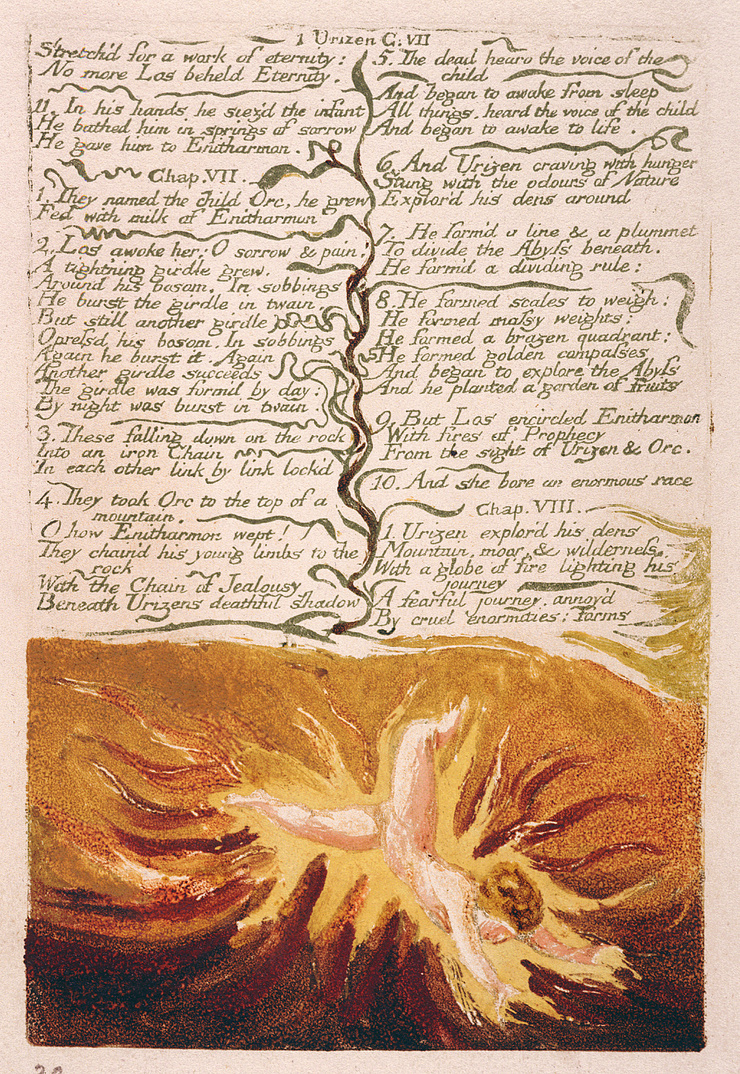 1 Urizen C: VII
Stretch'd for a work of eternity:
No more Los beheld Eternity.
11. In his hands he siez'd the infant
He bathed him in springs of sorrow
He gave him to Enitharmon.
Chap. VII.
1. They named the child Orc, he grew
Fed with milk of Enitharmon
2. Los awoke her; O sorrow & pain!
A tightning girdle grew.
Around his bosom. In sobbings
He burst the girdle in twain,
But still another girdle
Opress'd his bosom, In sobbings
Again he burst it. Again
Another girdle succeeds
The girdle was form'd by day:
By night was burst in twain.
3. These falling down on the rock
Into an iron Chain
In each other link by link lock'd
4. They took Orc to the top of a
mountain.
O how Enitharmon wept!
They chain'd his young limbs to the
rock
With the Chain of Jealousy
Beneath Urizens deathful shadow
5. The dead heard the voice of the
child
And began to awake from sleep
All things, heard the voice of the child
And began to awake to life.
6. And Urizen craving with hunger
Stung with the odours of Nature
Explor'd his dens around
7. He form'd a line & a plummet
To divide the Abyss beneath.
He form'd a dividing rule:
8. He formed scales to weigh:
He formed massy weights;
He formed a brazen quadrant:
He formed golden compasses
And began to explore the Abyss
And he planted a garden of fruits
9. But Los encircled Enitharmon
With fires of Prophecy
From the sight of Urizen & Orc.
10. And she bore an enormous race
Chap. VIII.
1. Urizen explor'd his dens
Mountain, moor, & wilderness,
With a globe of fire lighting his
journey
A fearful journey, annoy'd
By cruel enormities: forms